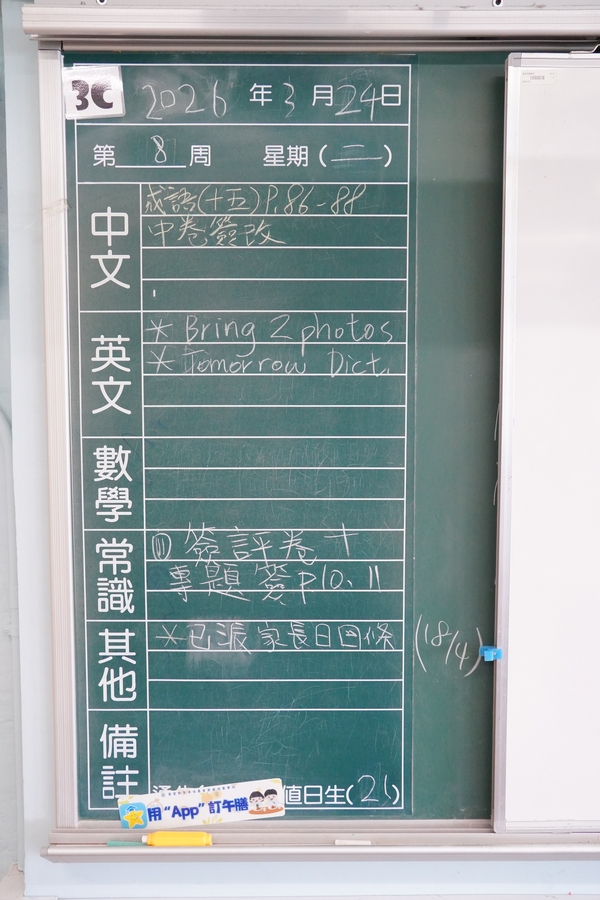 3C
2026 年 3 月 24 日
第 8 周 星期 (二)
中文
成語(十五) P.86-88
中卷簽改
英文
* Bring 2 photos
* Tomorrow Dict.
數學
常識
簽評卷
專題簽 P10, 11
其他
*已派家長日回條 (18/4)
備註
值日生(21)
用“App”訂午膳